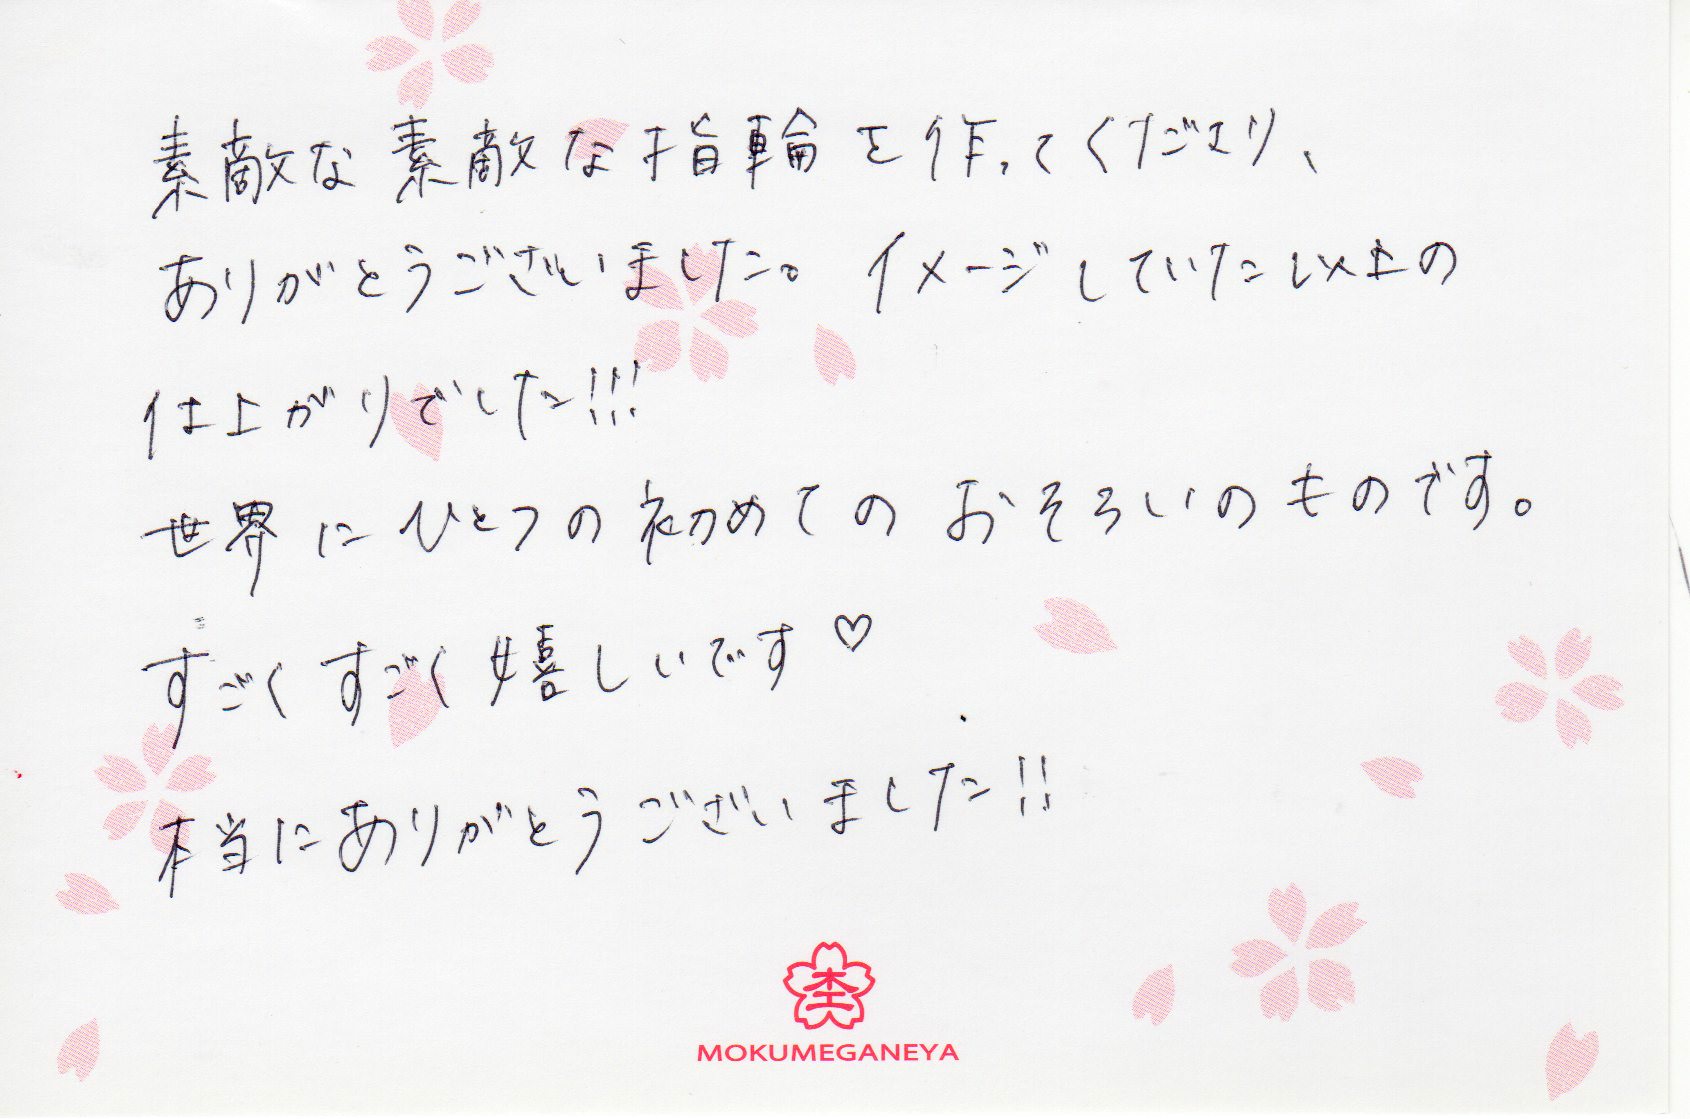 素敵な素敵な指輪を作ってくださり、
ありがとうございました。イメージしていた以上の
仕上がりでした!!!
世界にひとつの初めてのおそろいのものです。
すごくすごく嬉しいです♡
本当にありがとうございました!!
杢
MOKUMEGANEYA